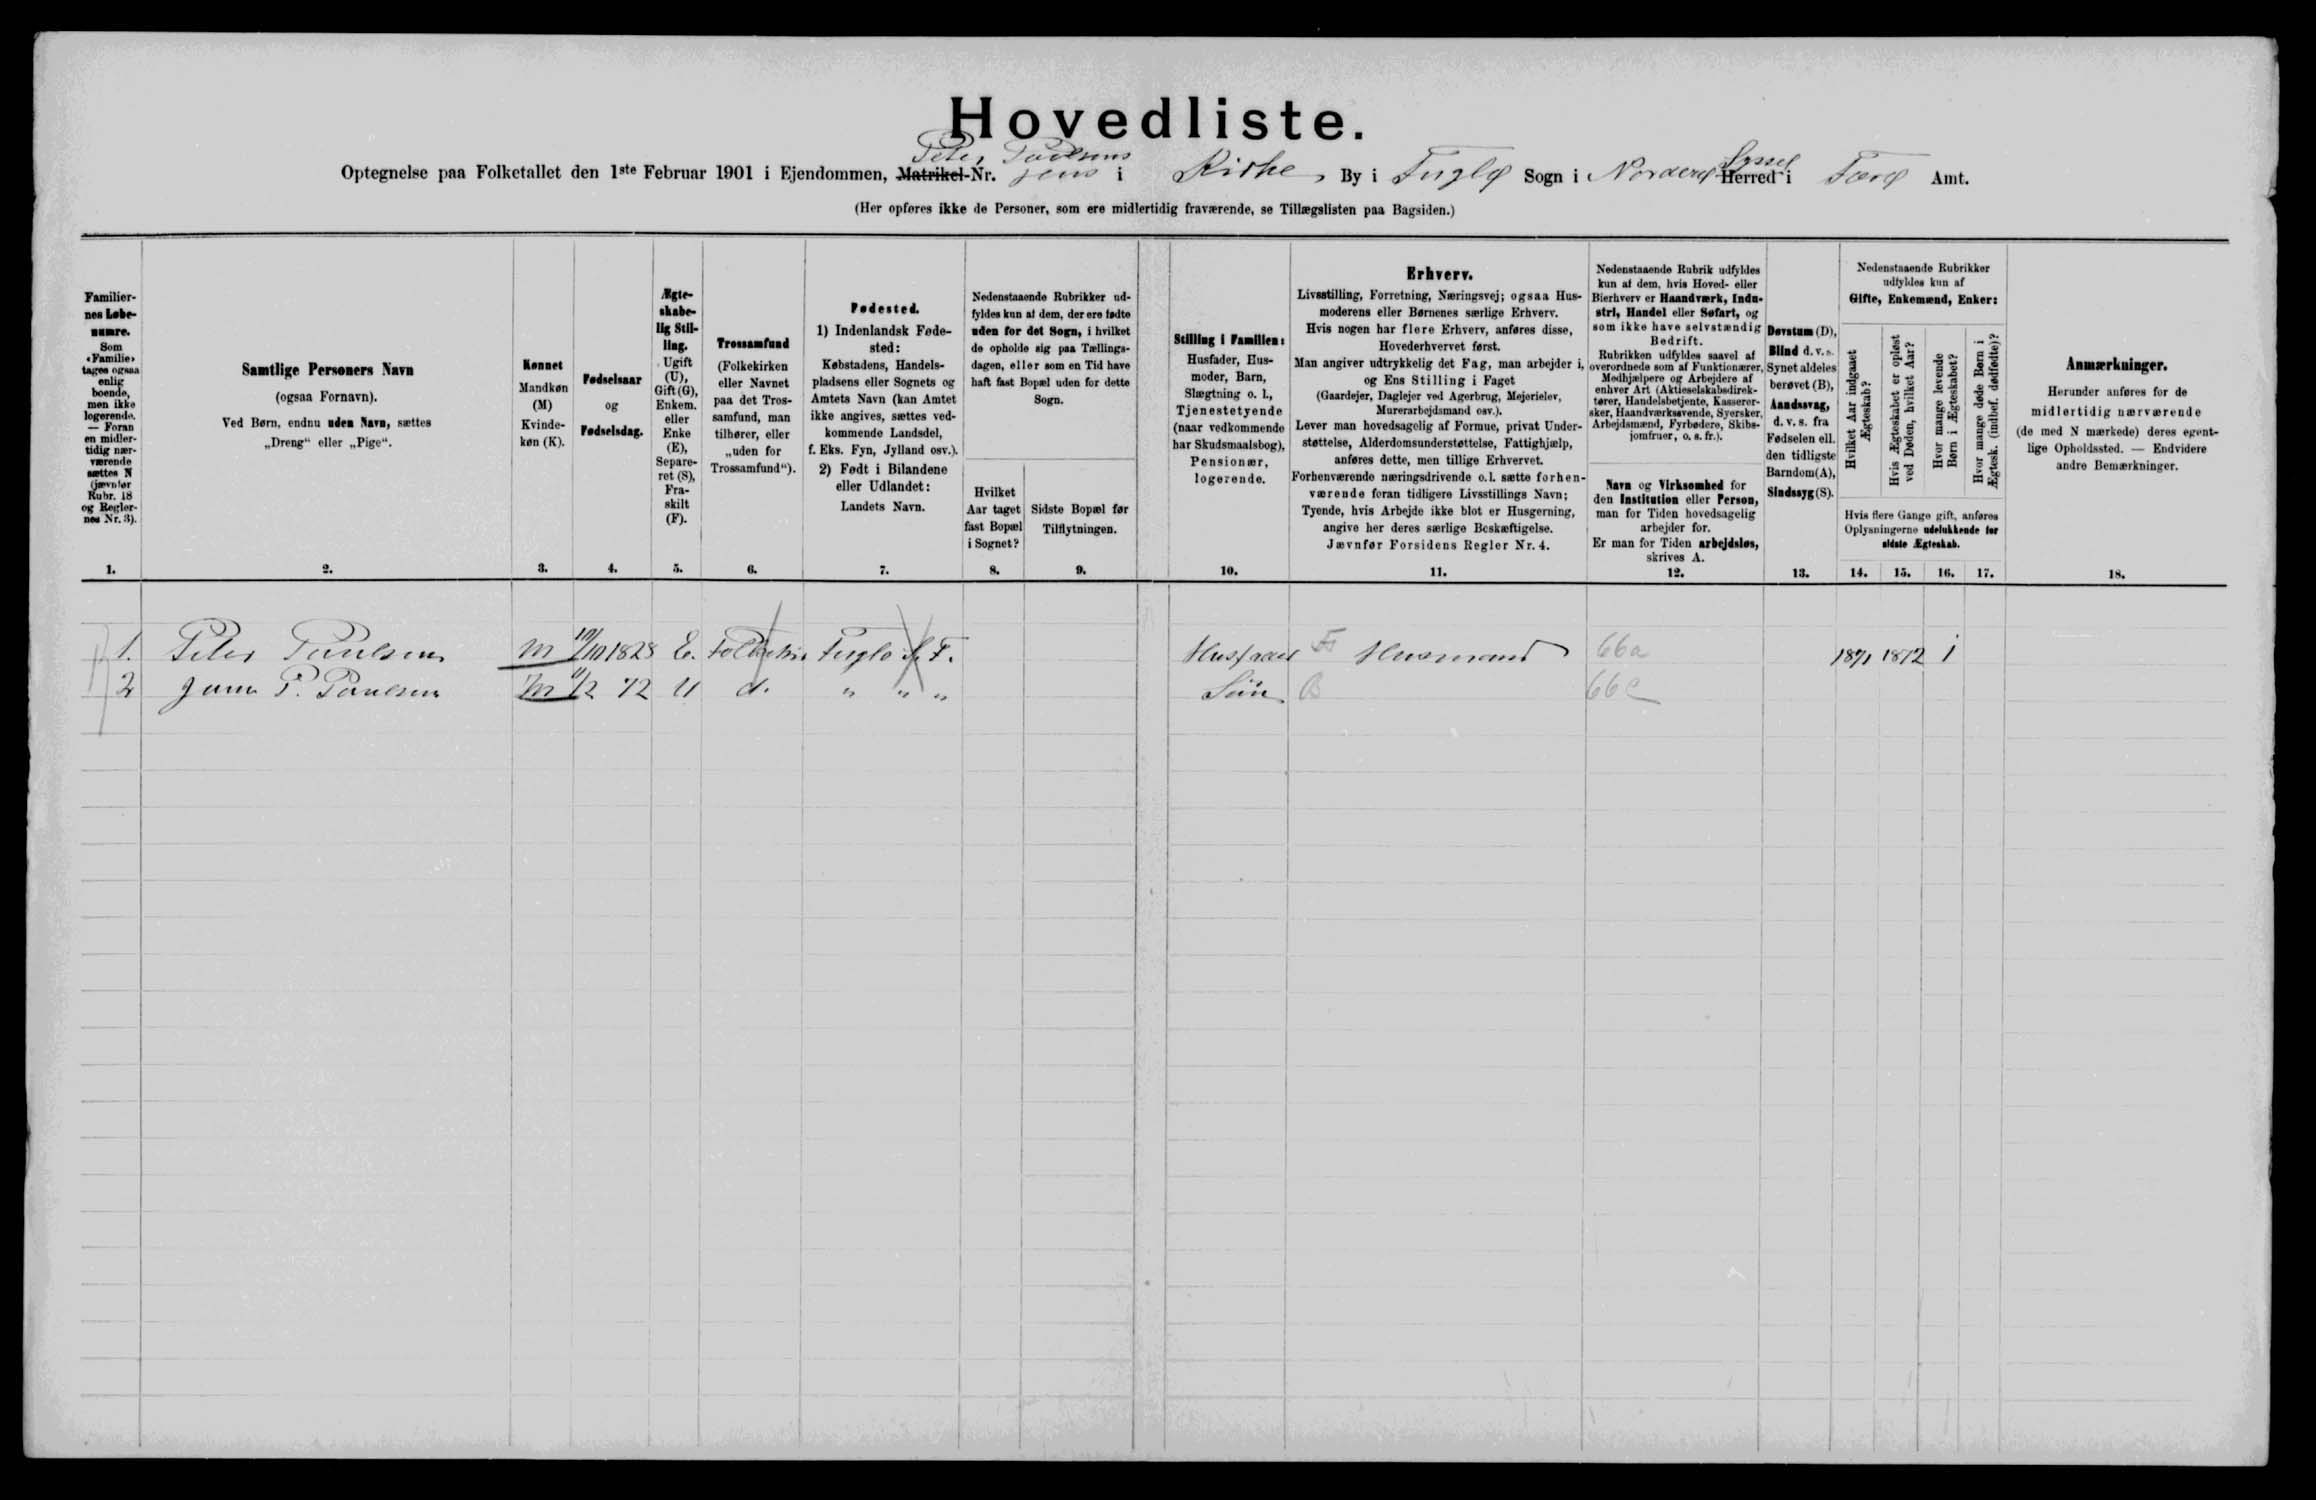 Hovedliste.
Peter Poulsens
Optegnelse paa Folketallet den 1ste Februar 1901 i Ejendommen, Matrikel-Nr. Jens i Kirke By i Fuglø Sogn i Norderø Syssel Herred i Færø Amt.
(Her opføres ikke de Personer, som ere midlertidig fraværende, se Tillægslisten paa Bagsiden.)
Familier-
nes Løbe-
numre.
Som
«Familie»
tages ogsaa
enlig
boende,
men ikke
logerende.
— Foran
en midler-
tidig nær-
værende
sættes N
(jævnfør
Rubr. 18
og Regler-
nes Nr. 3).
1.
Samtlige Personers Navn
(ogsaa Fornavn).
Ved Børn, endnu uden Navn, sættes
„Dreng“ eller „Pige“.
2.
Kønnet
Mandkøn
(M)
Kvinde-
køn (K).
3.
Fødselsaar
og
Fødselsdag.
4.
Ægte-
skabe-
lig Stil-
ling.
Ugift
(U),
Gift (G),
Enkem.
eller
Enke
(E),
Separe-
ret (S),
Fra-
skilt
(F).
5.
Trossamfund
(Folkekirken
eller Navnet
paa det Tros-
samfund, man
tilhører, eller
„uden for
Trossamfund“).
6.
Fødested.
1) Indenlandsk Føde-
sted:
Købstadens, Handels-
pladsens eller Sognets og
Amtets Navn (kan Amtet
ikke angives, sættes ved-
kommende Landsdel,
f. Eks. Fyn, Jylland osv.).
2) Født i Bilandene
eller Udlandet:
Landets Navn.
7.
Nedenstaaende Rubrikker ud-
fyldes kun af dem, der ere fødte
uden for det Sogn, i hvilket
de opholde sig paa Tællings-
dagen, eller som en Tid have
haft fast Bopæl uden for dette
Sogn.
Hvilket
Aar taget
fast Bopæl
i Sognet?
8.
Sidste Bopæl før
Tilflytningen.
9.
Stilling i Familien:
Husfader, Hus-
moder, Barn,
Slægtning o. l.,
Tjenestetyende
(naar vedkommende
har Skudsmaalsbog),
Pensionær,
logerende.
10.
Erhverv.
Livsstilling, Forretning, Næringsvej; ogsaa Hus-
moderens eller Børnenes særlige Erhverv.
Hvis nogen har flere Erhverv, anføres disse,
Hovederhvervet først.
Man angiver udtrykkelig det Fag, man arbejder i,
og Ens Stilling i Faget
(Gaardejer, Daglejer ved Agerbrug, Mejerielev,
Murerarbejdsmand osv.).
Lever man hovedsagelig af Formue, privat Under-
støttelse, Alderdomsunderstøttelse, Fattighjælp,
anføres dette, men tillige Erhvervet.
Forhenværende næringsdrivende o. l. sætte forhen-
værende foran tidligere Livsstillings Navn;
Tyende, hvis Arbejde ikke blot er Husgerning,
angive her deres særlige Beskæftigelse.
Jævnfør Forsidens Regler Nr. 4.
11.
Nedenstaaende Rubrik udfyldes
kun af dem, hvis Hoved- eller
Bierhverv er Haandværk, Indu-
stri, Handel eller Søfart, og
som ikke have selvstændig
Bedrift.
Rubrikken udfyldes saavel af
overordnede som af Funktionærer,
Medhjælpere og Arbejdere af
enhver Art (Aktieselskabsdirek-
tører, Handelsbetjente, Kasserer-
sker, Haandværksvende, Syersker,
Arbejdsmænd, Fyrbødere, Skibs-
jomfruer, o. s. fr.).
Navn og Virksomhed for
den Institution eller Person,
man for Tiden hovedsagelig
arbejder for.
Er man for Tiden arbejdsløs,
skrives A.
12.
Døvstum (D),
Blind d. v. s.
Synet aldeles
berøvet (B),
Aandssvag,
d. v. s. fra
Fødselen ell.
den tidligste
Barndom (A),
Sindssyg (S).
13.
Nedenstaaende Rubrikker
udfyldes kun af
Gifte, Enkemænd, Enker:
Hvilket Aar indgaaet
Ægteskab?
Hvis Ægteskabet er opløst
ved Døden, hvilket Aar?
Hvor mange levende
Børn i Ægteskabet?
Hvor mange døde Børn i
Ægtesk. (indbef. dødfødte)?
Hvis flere Gange gift, anføres
Oplysningerne udelukkende for
sidste Ægteskab.
14. 15. 16. 17.
Anmærkninger.
Herunder anføres for de
midlertidig nærværende
(de med N mærkede) deres egent-
lige Opholdssted. — Endvidere
andre Bemærkninger.
18.
1. Peter Poulsen M 10/10 1828 E. Folkekir Fuglø F. Husfader Husmand 66a 1871 1872 1
2 P. Poulsen M 72 U d. " " " Søn B 66c